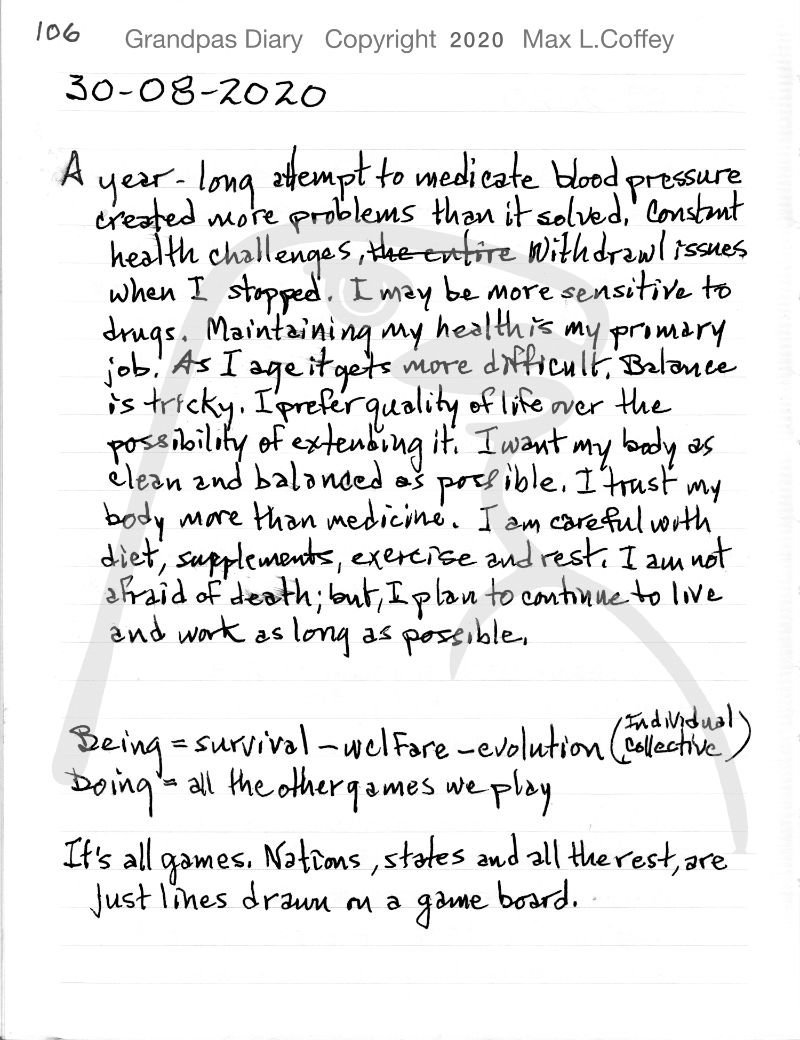 106
Grandpas Diary Copyright 2020 Max L.Coffey
30-08-2020
A year-long attempt to medicate blood pressure
created more problems than it solved. Constant
health challenges, the entire Withdrawl issues
when I stopped. I may be more sensitive to
drugs. Maintaining my health is my primary
job. As I age it gets more difficult. Balance
is tricky. I prefer quality of life over the
possibility of extending it. I want my body as
clean and balanced as possible. I trust my
body more than medicine. I am careful with
diet, supplements, exercise and rest. I am not
afraid of death; but, I plan to continue to live
and work as long as possible.
Being = survival - welfare - evolution (Individual
Collective)
Doing = all the other games we play
It's all games. Nations, states and all the rest, are
just lines drawn on a game board.